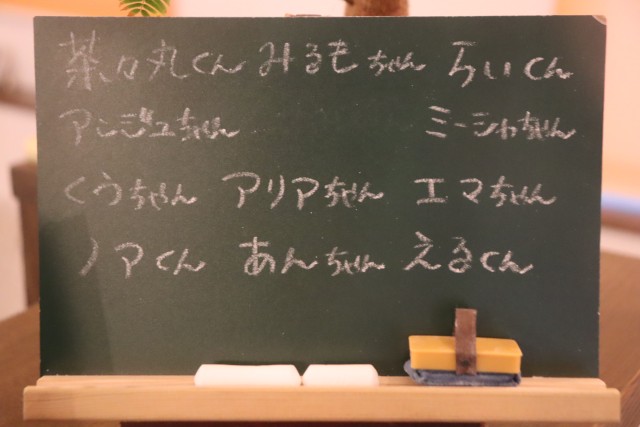 茶々丸くん みるもちゃん らいくん
アンジュちゃん ミーシャちゃん
くうちゃん アリアちゃん エマちゃん
ノアくん あんちゃん えるくん